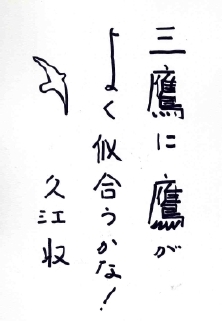 三鷹に鷹が
よく似合うかな!
久江収